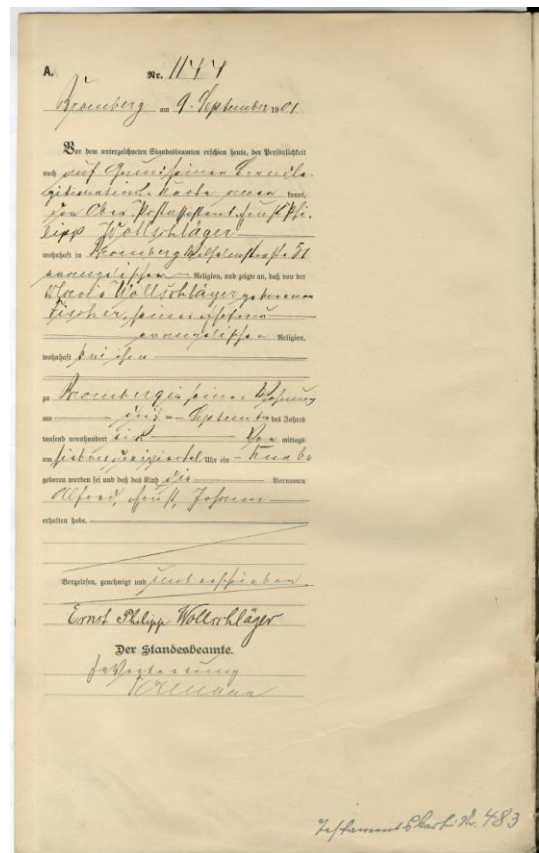 A.
Nr. 1144
Bromberg am 9. September 1901
Vor dem unterzeichneten Standesbeamten erschien heute, der Persönlichkeit
nach auf Grund seiner
Karte kannt,
der Ober-Postassistent Ernst Phi-
lipp Wollschläger
wohnhaft in Bromberg Wilhelmstraße 51
evangelischer Religion, und zeigte an, daß von der
Wollschläger geborenen
Fischer, seiner Ehefrau
evangelischer Religion,
wohnhaft bei ihm
zu Bromberg in seiner Wohnung
am September des Jahres
tausend neunhundert eins Vor mittags
um sieben Uhr ein Knabe
geboren worden sei und daß das Kind die Vornamen
Alfred, Ernst, Johann
erhalten habe.
Vorgelesen, genehmigt und unterschrieben
Ernst Philipp Wollschläger
Der Standesbeamte.
In Vertretung
Testaments Kartei Nr. 483